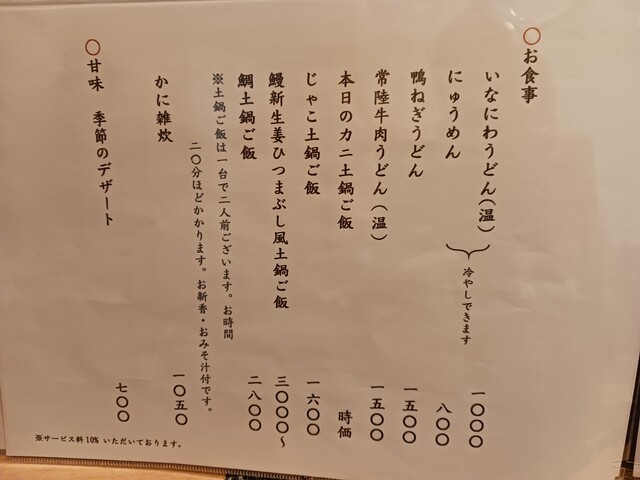 〇お食事
いなにわうどん（温） 一〇〇〇
にゅうめん 八〇〇
冷やしできます
鴨ねぎうどん 一五〇〇
常陸牛肉うどん（温） 一五〇〇
本日のカニ土鍋ご飯 時価
じゃこ土鍋ご飯 一六〇〇
鰻新生姜ひつまぶし風土鍋ご飯 三〇〇〇〜
鯛土鍋ご飯 二八〇〇
※土鍋ご飯は一台で二人前ございます。お時間
二〇分ほどかかります。お新香・おみそ汁付です。
かに雑炊 一〇五〇
〇甘味 季節のデザート 七〇〇
※サービス料10% いただいております。